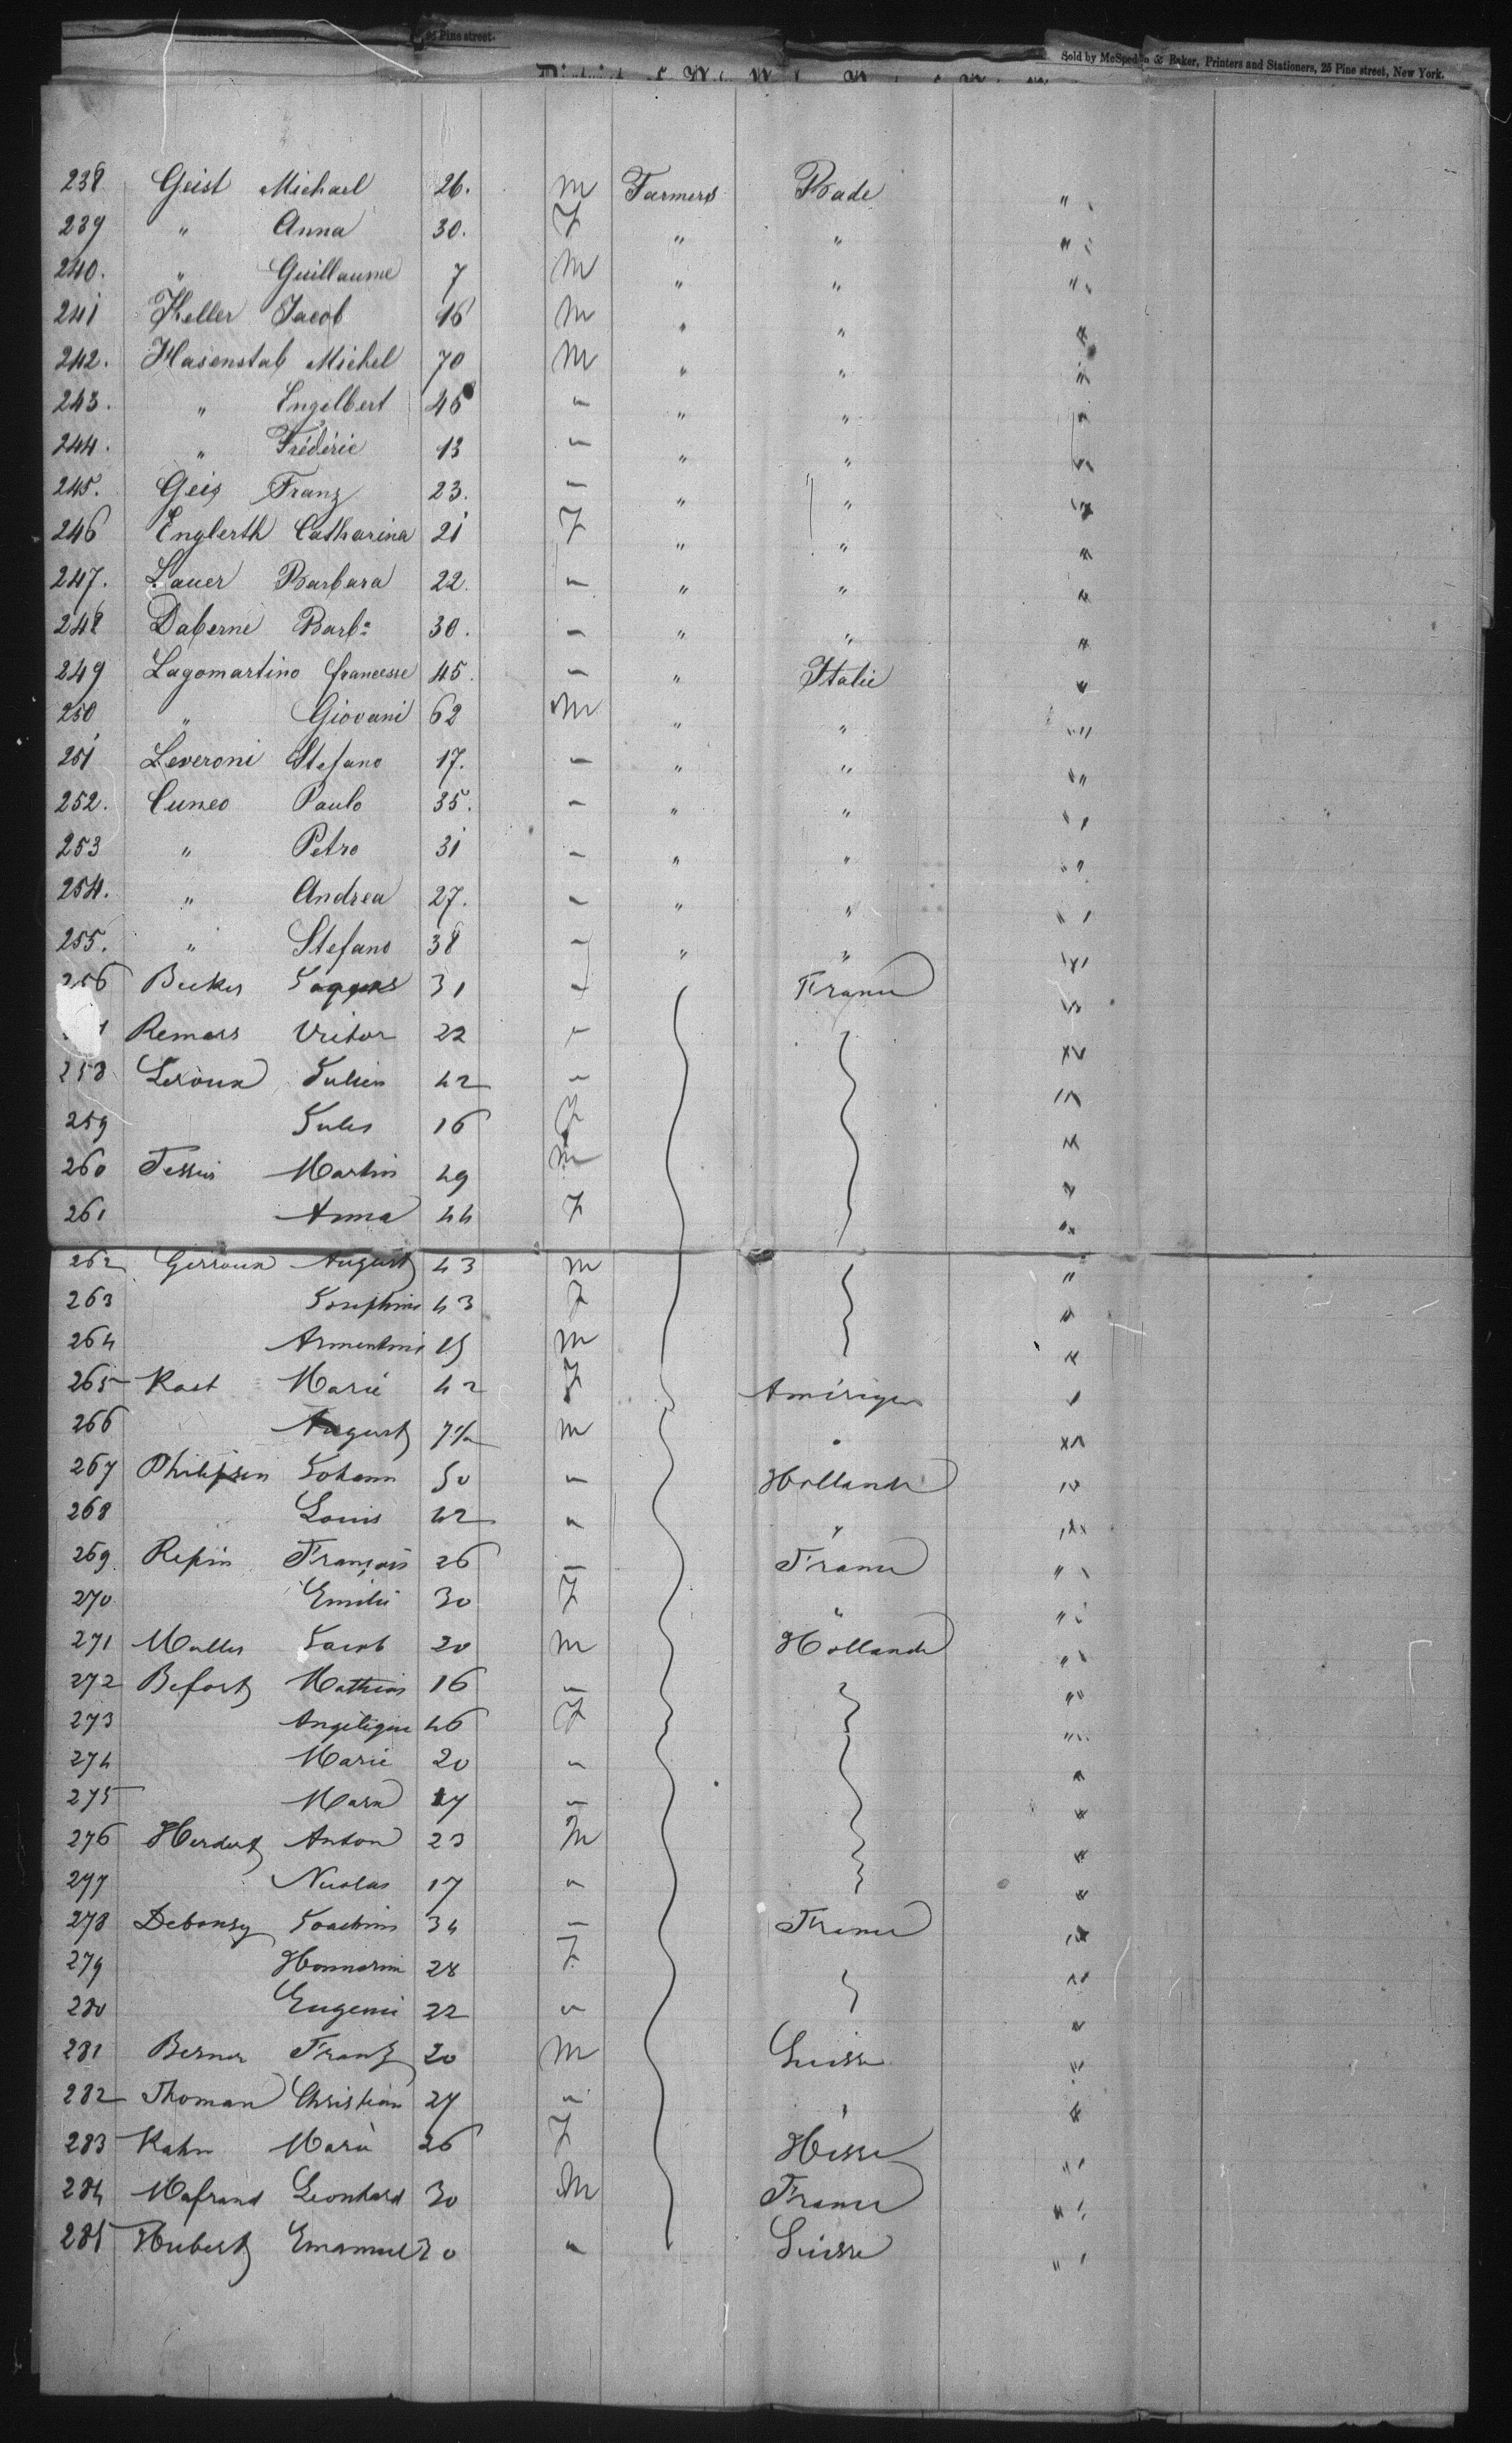 25 Pine street.
Sold by McSpedon & Baker, Printers and Stationers, 25 Pine street, New York.
238 Geist Michael 26. M Farmers Bade "
239 " Anna 30. F " " "
240. " Guillaume 7 M " " "
241 Keller Jacob 16 M " " "
242. Hasenstab Michel 70 M " " "
243. " Engelbert 46 " " " "
244. " Frédéric 13 " " " "
245. Geis Franz 23. " " " "
246 Englerth Catharina 21 F " " "
247. Lauer Barbara 22. " " " "
248 Daberne Barba 30. " " " "
249 Lagomartino francesse 45. " " Italie "
250 " Giovani 62 M " " "
251 Leveroni Stefano 17. " " " "
252. Cuneo Paulo 35. " " " "
253 " Petro 31 " " " "
254. " Andrea 27. " " " "
255. " Stefano 38 " " " "
256 Becker 31 " France "
Remars Victor 22 " "
258 Leroux Julien 42 " "
259 Jules 16 F "
260 Martin 49 M "
261 Anna 44 F "
262 Girroux August 43 M "
263 Josephine 43 F "
264 15 M "
265 Kast Marie 42 F Amérique "
266 August 7 1/2 M " "
267 Philipsen Johann 50 " Hollande "
268 Louis 42 " " "
269. Repin François 26 " France "
270 Emilie 30 F " "
271 Muller Jacob 20 M Hollande "
272 Befort Mathias 16 " "
273 Angélique 46 F "
274 Marie 20 " "
275 17 " "
276 Herdert Anton 23 M "
277 Nicolas 17 " "
278 Joachim 34 " France "
279 28 F "
280 Eugenie 22 " "
281 Berner Franz 20 M Suisse "
282 Thoman Christian 27 " " "
283 Kahn Marie 26 F Hesse "
284 Mafrand Leonhard 30 M France "
285 Hubert Emanuel 20 " Suisse "